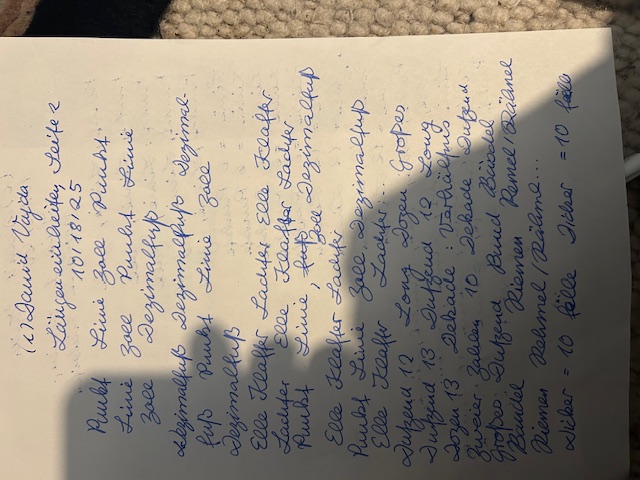 (c) David Vajda
Längeneinheiten Seite 2
10/18/25
Punkt Linie Zoll Punkt
Linie Zoll Punkt Linie
Zoll Dezimalfuß
Dezimalfuß Dezimalfuß Dezimal-
fuß Punkt Linie Zoll
Dezimalfuß
Elle Klafter Lachter Elle Klafter
Lachter Elle Klafter Lachter
Punkt Linie, Zoll Dezimalfuß
Elle Klafter Lachter
Punkt Linie Zoll Dezimalfuß
Elle Klafter Lachter...
Dutzend 12 Long Dozen Großes
Dutzend 13 Dutzend 12 Long
Dozen 13 Dekade: Verhältnis
Zweier Zahlen 10 Dekade Dutzend
Großes Dutzend Bund Bündel
Bündel Riemen Remel/Rähmel
Riemen Rehmel/Rähme...
Dicker = 10 Felle Dicker = 10 Felle